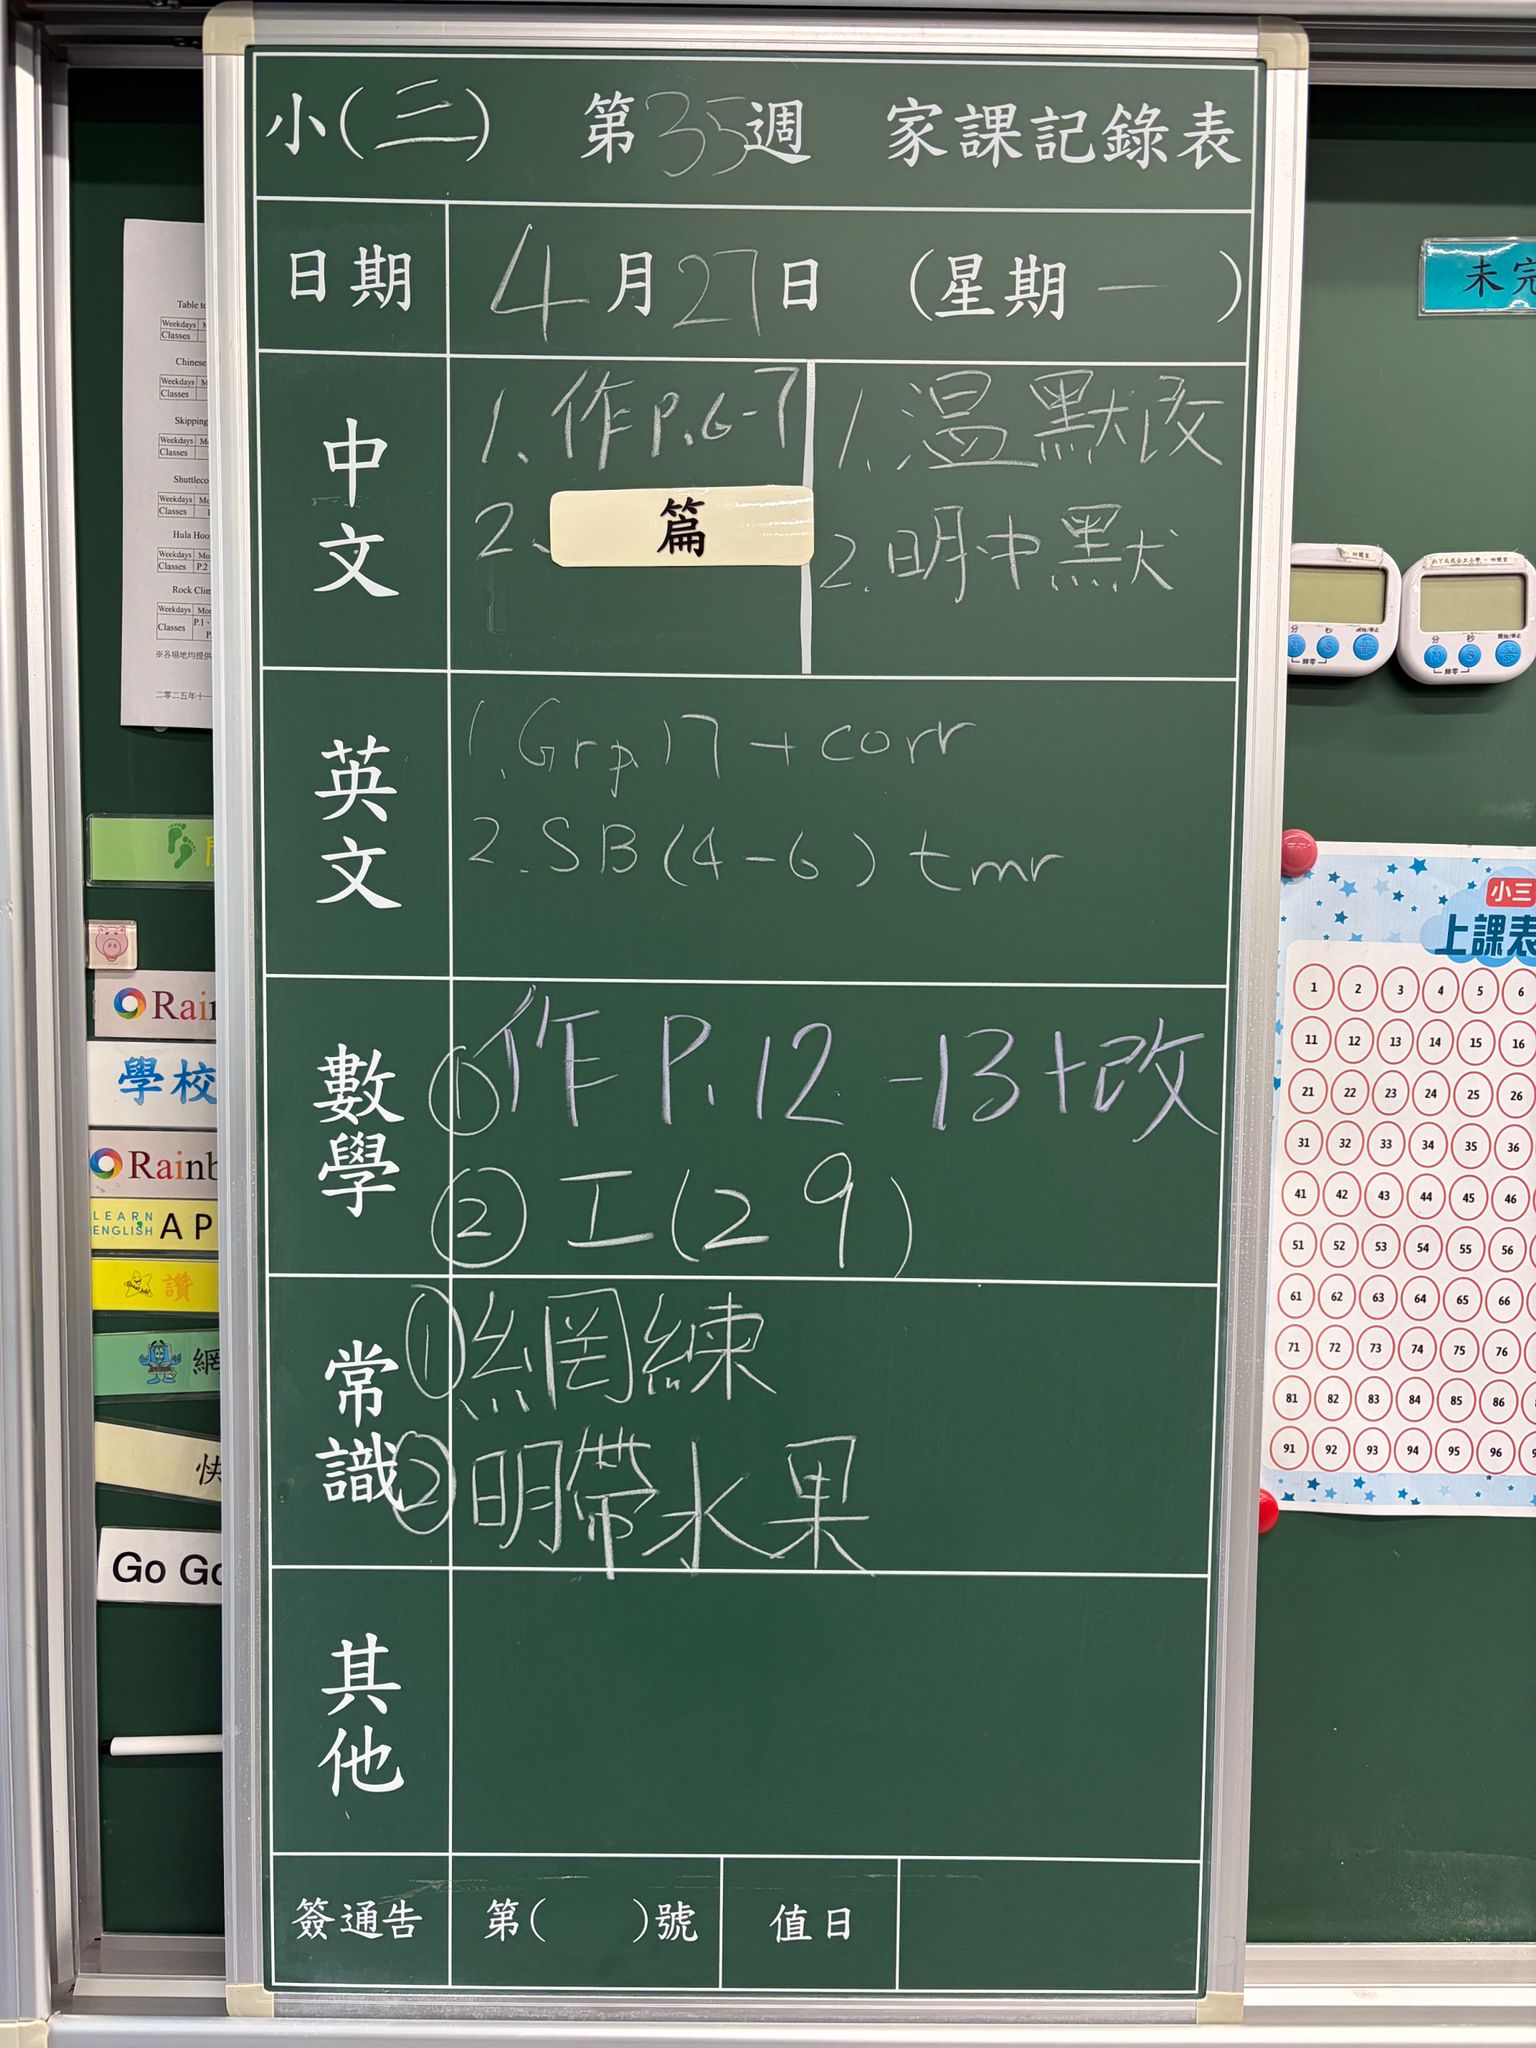 小(三) 第35週 家課記錄表
日期 4月27日 (星期一)
中文
1. 作P.6-7
2. 篇
1. 温默改
2. 明中默
英文
1. Grp.17 + corr
2. SB(4-6) tmr
數學
① 作P.12-13+改
② 工(29)
常識
① 網練
② 明帶水果
其他
簽通告 第( )號 值日
Weekdays
Classes
Chinese
Weekdays
Classes
Skipping
Weekdays
Classes
Weekdays
Classes
Weekdays
Classes P.2
Weekdays
Classes P.1、
※各場地均提供
二零二五年十一
學校
LEARN ENGLISH
讚
網
快
未完
分 秒 開始/停止
歸零
分 秒 開始/停止
歸零
小三
上課表
1 2 3 4 5 6
11 12 13 14 15 16
21 22 23 24 25 26
31 32 33 34 35 36
41 42 43 44 45 46
51 52 53 54 55 56
61 62 63 64 65 66
71 72 73 74 75 76
81 82 83 84 85 86
91 92 93 94 95 96